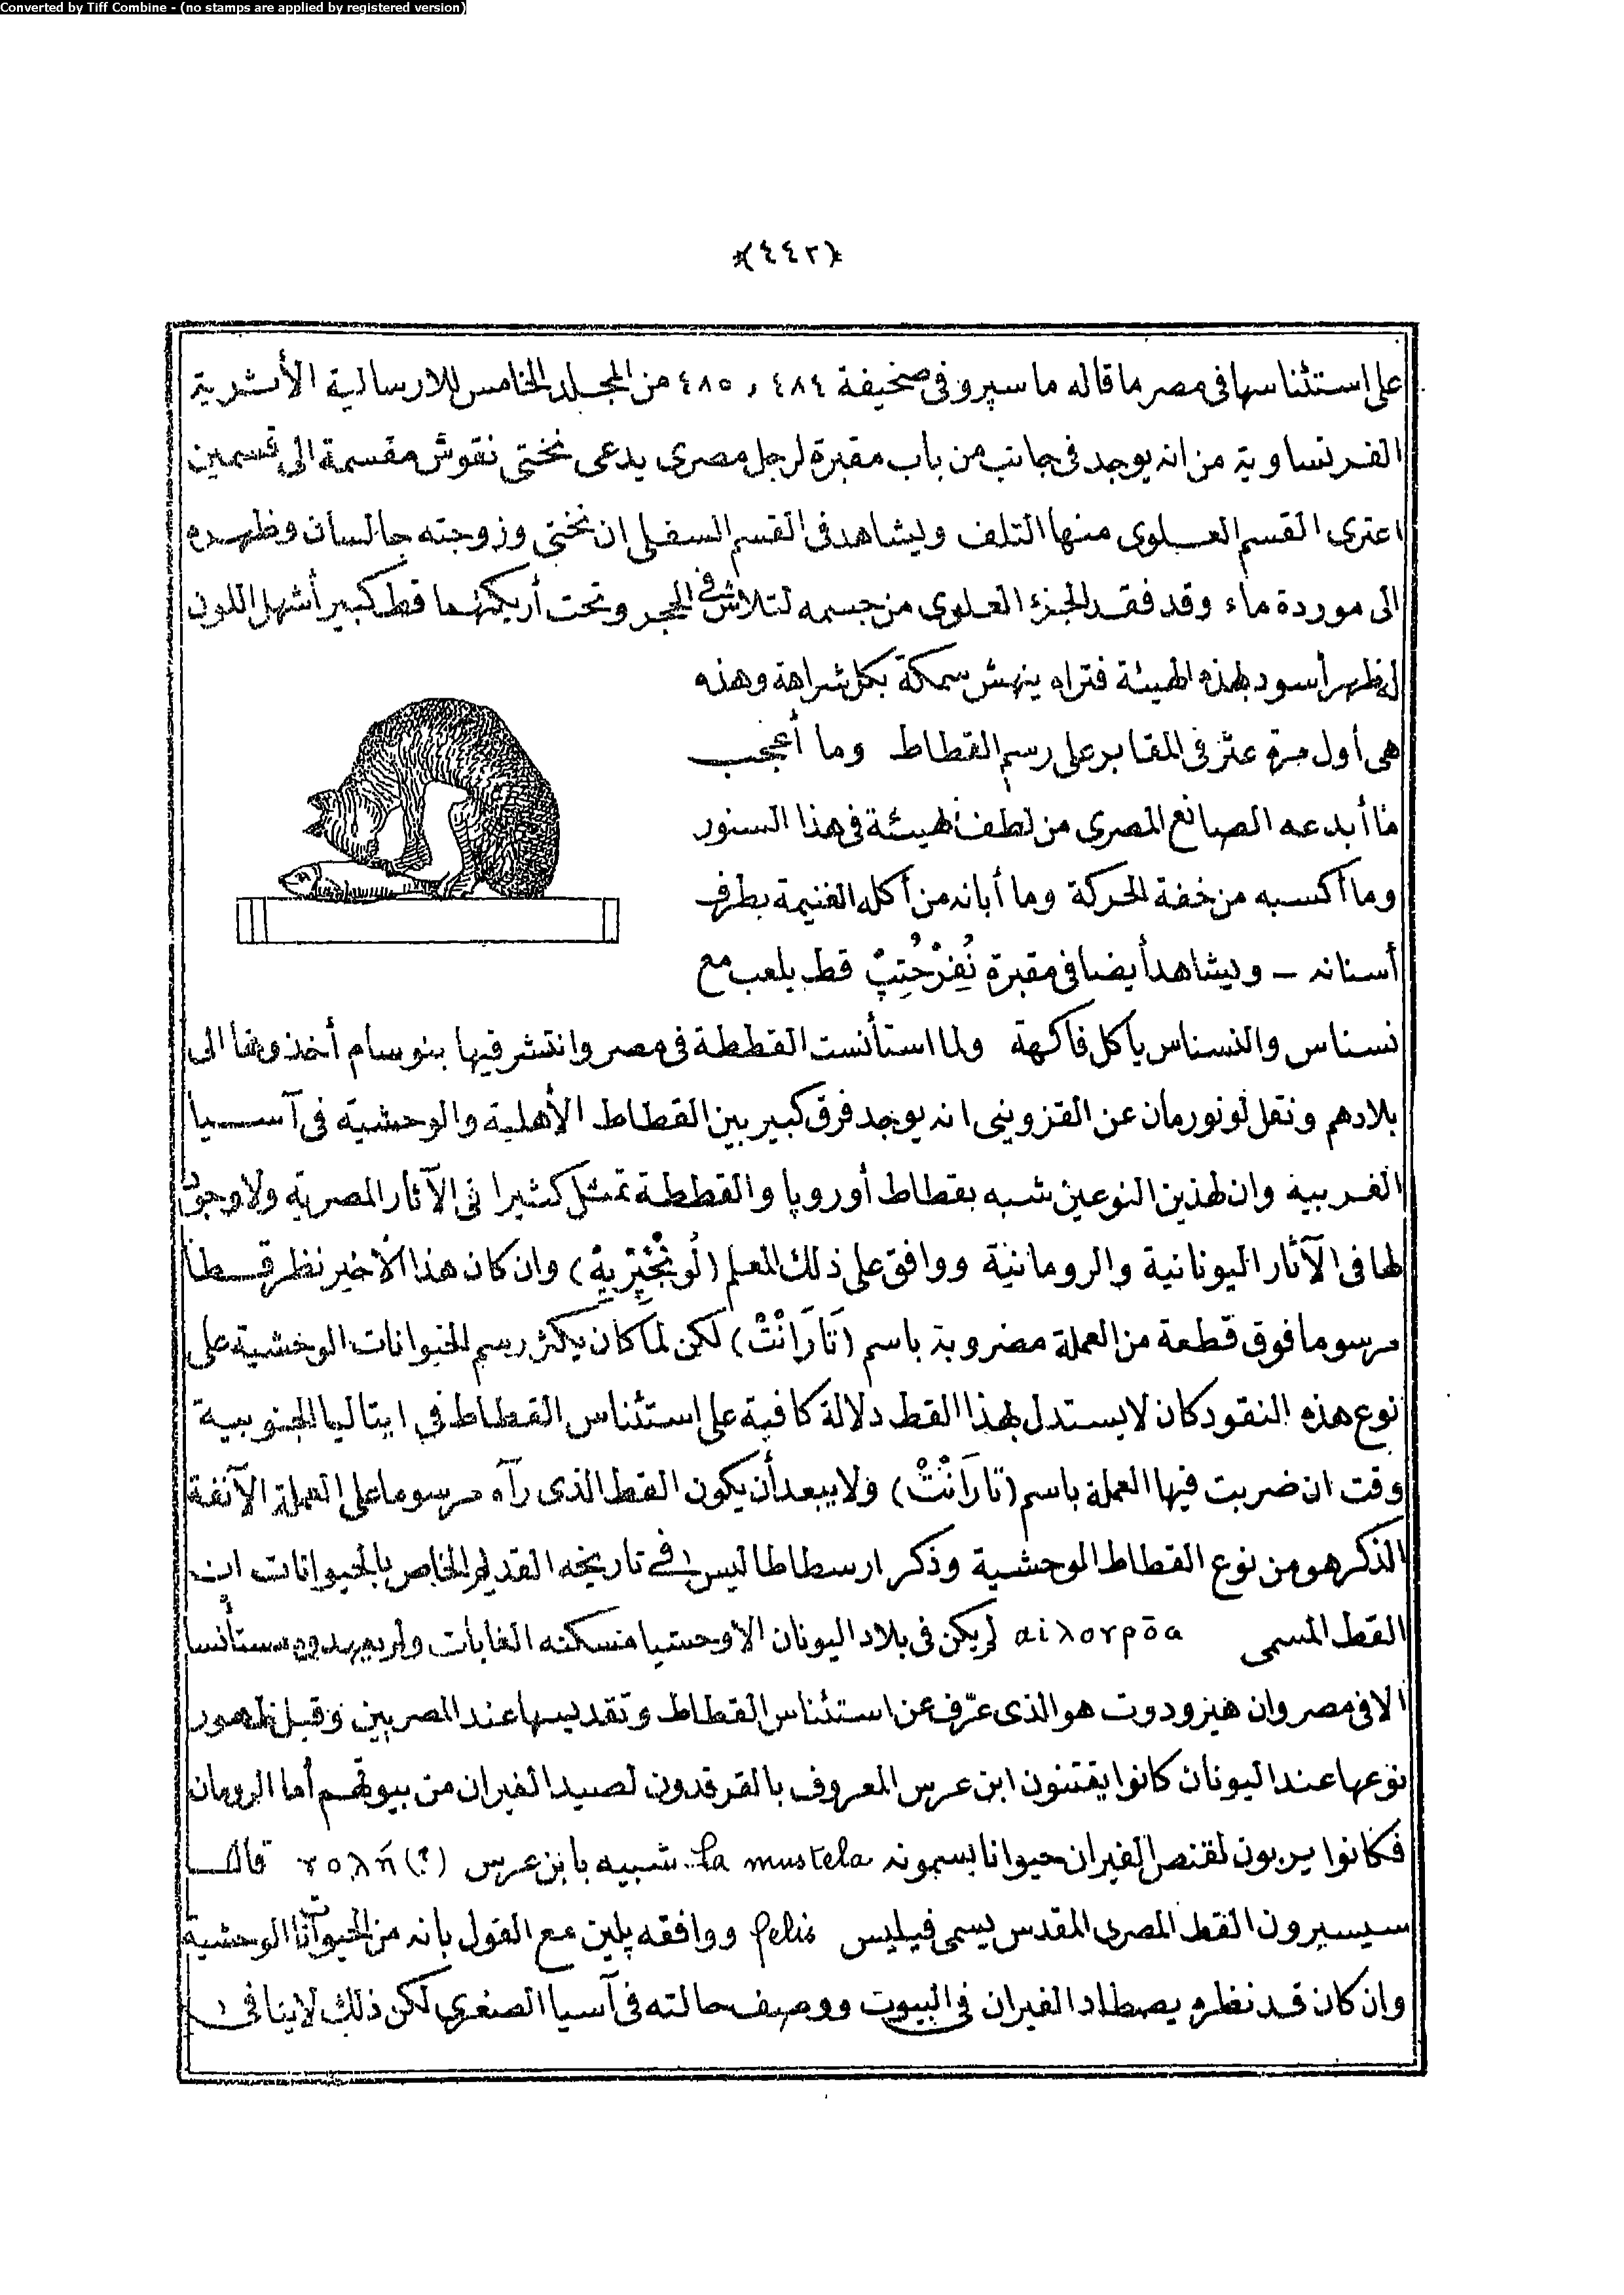 Converted by Tiff Combine - (no stamps are applied by registered version)
*(٤٤٢)*
على استئناسها فى مصر ما قاله ماسپرو فى صحيفة ٤٨٤ , ٤٨٥ من المجلد الخامس للارسالية الأثرية
الفرنساوية من انه يوجد فى جانب من باب مقبرة لرجل مصرى يدعى نختى نقوش مقسمة الى قسمين
اعترى القسم العلوى منها التلف ويشاهد فى القسم السفلى ان نختى وزوجته جالسان وظهره
الى موردة ماء وقد فقد الجزء العلوى من جسمه لتلاش فى الحجر وتحت أريكتهما قط كبير أشهل اللون
لظهر أسود بهذه الهيئة فتراه ينهش سمكة بكل شراهة وهذه
هى أول مرة عثر فى المقابر على رسم القطاط وما أعجب
ما أبدعه الصانع المصرى من لطف هيئة فى هذا السنور
وما أكسبه من خفة الحركة وما أبانه من أكله الغنيمة بطرف
أسنانه – ويشاهد أيضا فى مقبرة نُفِرْحُتِپْ قط يلعب مع
نسناس والنسناس يأكل فاكهة ولما استأنست القططة فى مصر وانتشر فيها بنو سام أخذوها الى
بلادهم ونقل لونورمان عن القزوينى انه يوجد فرق كبير بين القطاط الأهلية والوحشية فى آسيا
الغربية وان لهذين النوعين شبه بقطاط أوروپا والقططة تمثل كثيرا فى الآثار المصرية ولا وجود
لها فى الآثار اليونانية والرومانية ووافق على ذلك المعلم (لُونْجْپِّرْيِةْ) وان كان هذا الأخير نظر قطا
مرسوما فوق قطعة من العملة مضروبة باسم (تَارَانْتْ) لكن لما كان يكثر رسم الحيوانات الوحشية على
نوع هذه النقود كان لا يستدل لهذا القط دلالة كافية على استئناس القطاط فى ايتاليا الجنوبية
وقت ان ضربت فيها العملة باسم (تارَانْتْ) ولا يبعد أن يكون القط الذى رآه مرسوما على العملة الآنفة
الذكر هو من نوع القطاط الوحشية وذكر ارسطاطاليس فى تاريخه القديم الخاص بالحيوانات ان
القط المسمى αἰλουρρōα لم يكن فى بلاد اليونان الا وحشيا مسكنه الغابات ولم يعهدوه مستأنسا
الا فى مصر وان هيرودوت هو الذى عرّف عن استئناس القطاط وتقديسها عند المصريين وقبل ظهور
نوعها عند اليونان كانوا يقتنون ابن عرس المعروف بالقرقدون لصيد الفيران من بيوتهم أما الرومان
فكانوا يربون لقنص الفيران حيوانا يسمونه la mustela شبيه بابن عرس (؟) γολή قال
سيسيرون القط المصرى المقدس يسمى فيليس felis ووافقه پلين مع القول بانه من الحيوانات الوحشية
وان كان قد نظره يصطاد الفيران فى البيوت ووصف حالته فى آسيا الصغرى لكن ذلك لا ينافى